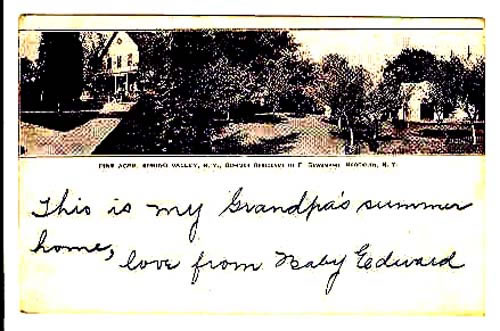 PINE ACRE, SPRING VALLEY, N. Y., SUMMER RESIDENCE OF E. BROOKLYN, N. Y.
This is my Grandpa's summer
home, love from Baby Edward